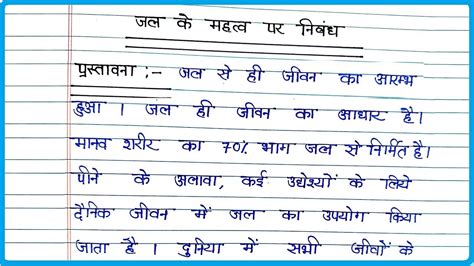 जल के महत्व पर निबंध
प्रस्तावना :- जल से ही जीवन का आरम्भ
हुआ । जल ही जीवन का आधार है।
मानव शरीर का 70% भाग जल से निर्मित है।
पीने के अलावा, कई उद्येश्यों के लिये
दैनिक जीवन में जल का उपयोग किया
जाता है । दुनिया में सभी जीवों के